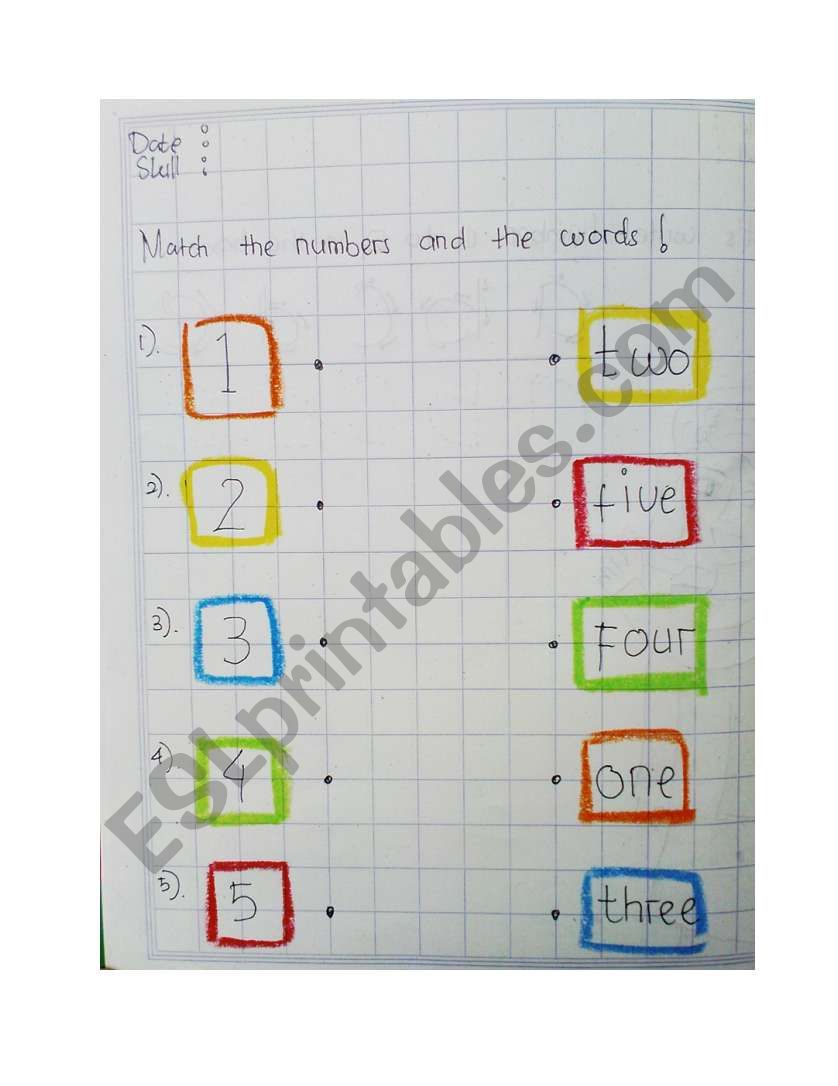 Date :
Skill :
Match the numbers and the words !
1). 1 two
2). 2 five
3). 3 Four
4). 4 one
5). 5 three
ESLprintables.com